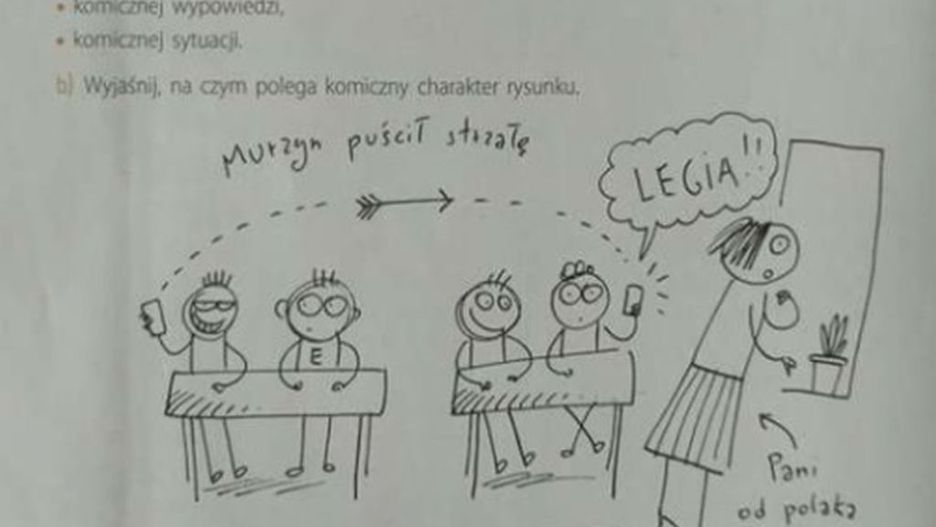 • komicznej wypowiedzi,
• komicznej sytuacji.
b) Wyjaśnij, na czym polega komiczny charakter rysunku.
Murzyn puścił strzałę
LEGIA!!
E
Pani
od polaka